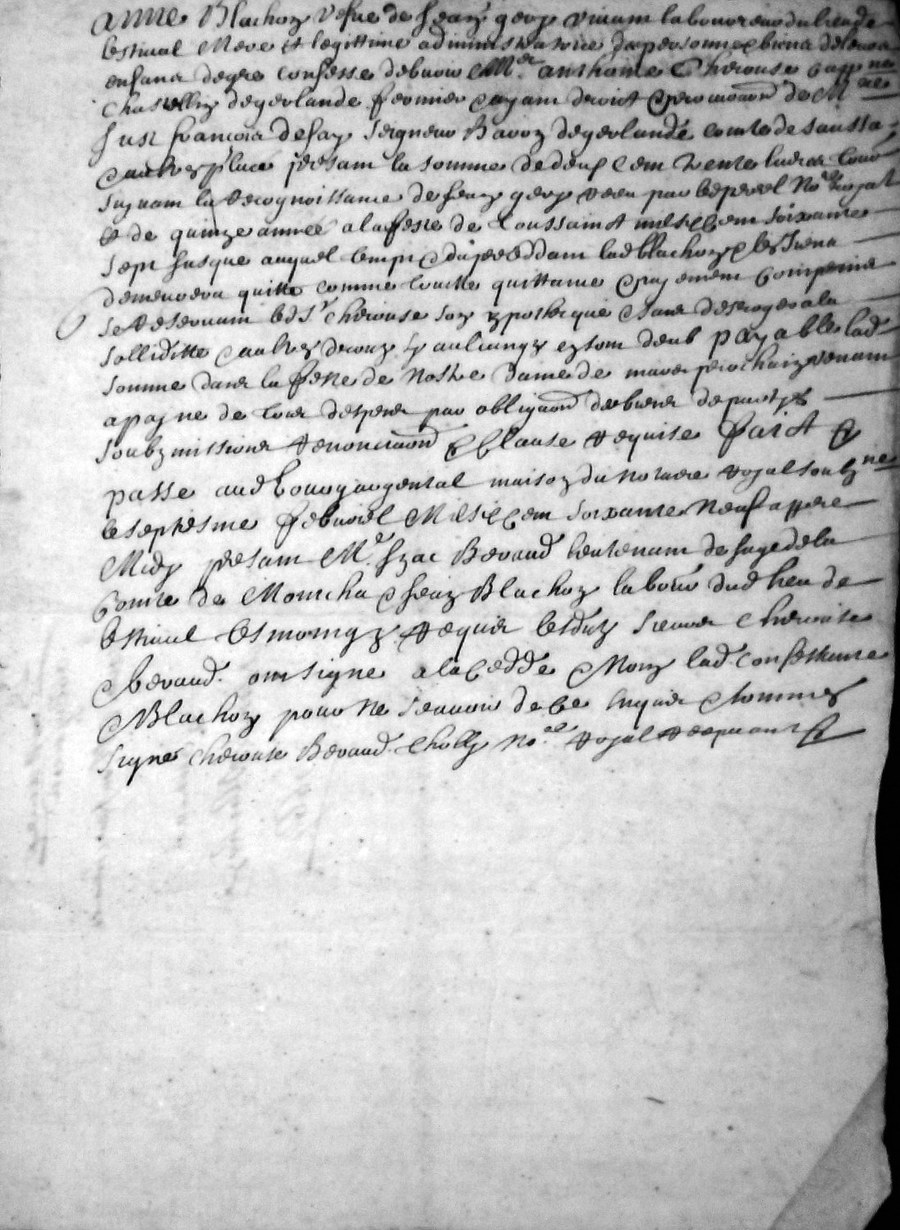 Anne Blachon vefue de Jean gery vivant laboureur du lieu de
lestival Mere et legittime administratrice des personnes et biens de leurs
enfans degre confesse debvoir a Mre anthoine Cherouse cappne
Chastellin de gerlande fermier ayant droict et procuraon de Mre
Just francois de fay seigneur Baron de gerlande comte de
et aultres places presant la somme de deux cent trente livres
suyvant la recognoissance de Jean gery receu par Nore Royal
et de quinze année a la feste de Toussainct mil six cent soixante
sept jusque auquel temps et diceux paiement lad Blachon et les siens
demeurera quitte comme toutte quittance et payement comprins
se reservant led Sr Cherouse son ypothecque sans desroger a la
solliditte et aultres droicts sy aulcungz en sont deub payable lad
somme dans la feste de Nostre dame de mars prochain venant
a payne de tous despens par obligaon de biens de partyes
soubzmissions renonciaons et Clause requise faict et
passe aud bourg argental maison du notaire royal soubzne
le sepiesme febvrier Mil six cent soixante Neuf appres
Midy presant Mr Izac Beraud lieutenant de juge de la
Comte de Montcha et Jean Blachon labour dud lieu de
lestival tesmoingz requis lesdits sieurs Cherouse
et Beraud ont signe a la cedde et Non lad confessante
et Blachon pour ne scavoir de ce enquis et sommes
Signe Cherouse Beraud et Cholly Nore royal recepvant